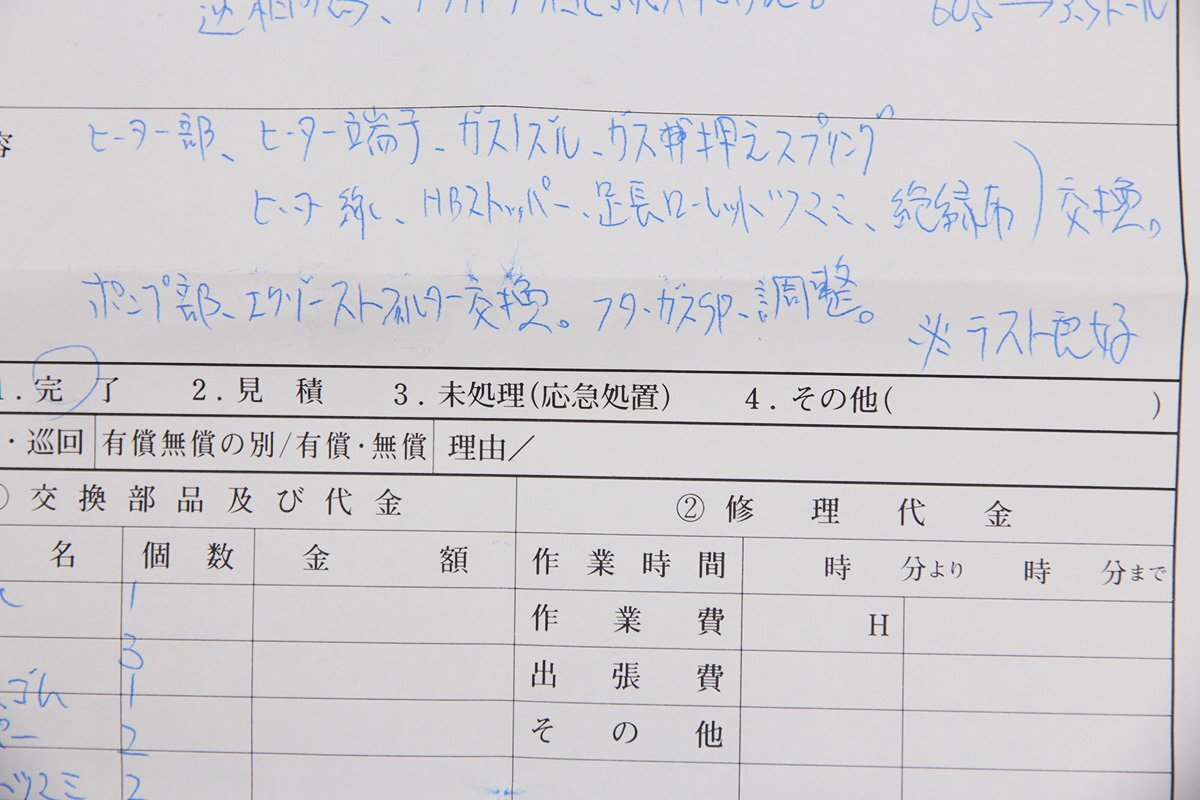 逆相の為、
60s → 3.5トール
容 ヒーター部、ヒーター端子、ガスノズル、ガス 押えスプリング
ヒーター線、HBストッパー、足長ローレットツマミ、絶縁布 ) 交換。
ポンプ部、エクゾーストフィルター交換。フタ、ガスSP、調整。
※テスト良好
1.完了 2.見積 3.未処理(応急処置) 4.その他( )
・巡回 有償無償の別/有償・無償 理由/
交換部品及び代金 ②修理代金
名 個数 金額 作業時間 時 分より 時 分まで
1 作業費 H
3 出張費
ゴム 1
2 その他
ツマミ 2